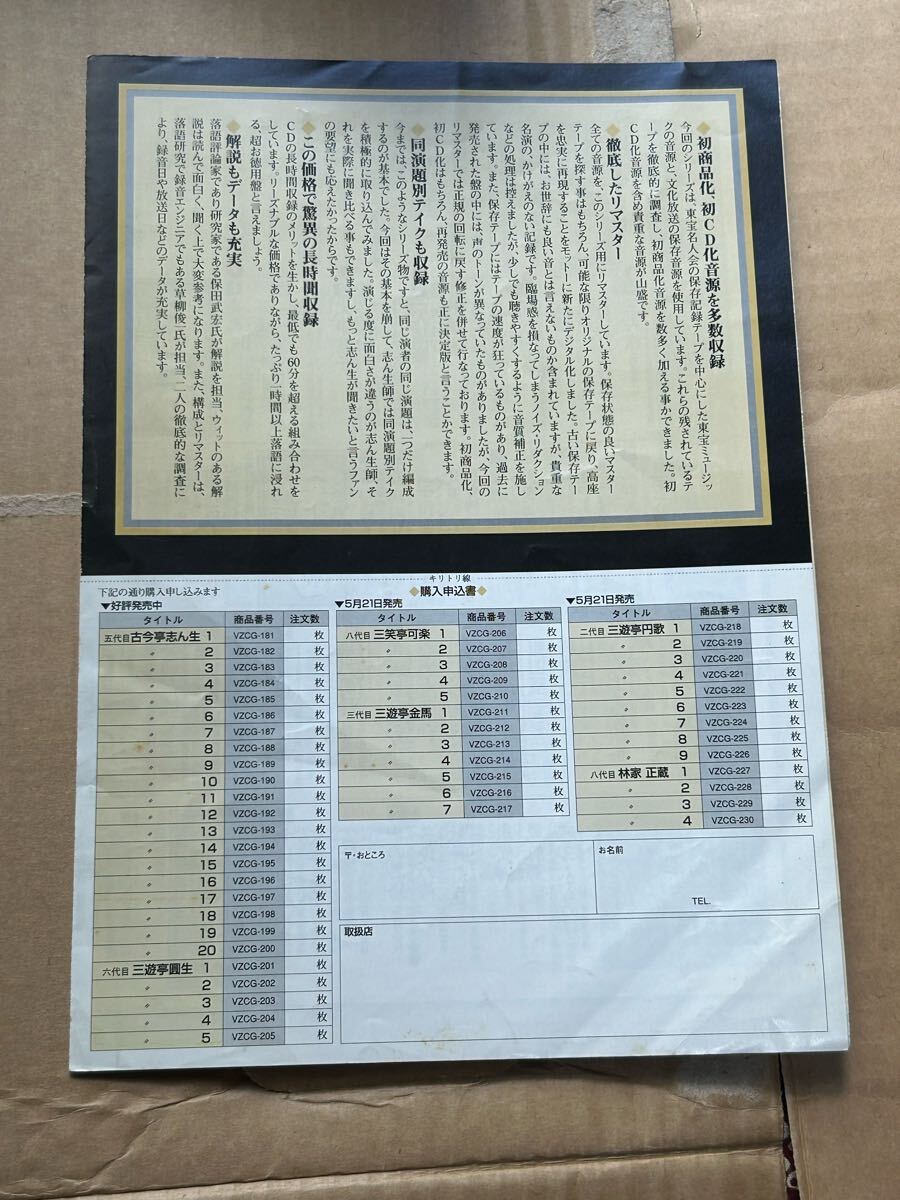 ◆初商品化、初CD化音源を多数収録
今回のシリーズは、東宝名人会の保存記録テープを中心にした東宝ミュージッ
クの音源と、文化放送の保存音源を使用しています。これらの残されているテ
ープを徹底的に調査し、初商品化音源を数多く加える事ができました。初
CD化音源を含め貴重な音源が山盛です。
◆徹底したリマスター
全ての音源を、このシリーズ用にリマスターしています。保存状態の良いマスター
テープを探す事はもちろん、可能な限りオリジナルの保存テープに戻り、高座
を忠実に再現することをモットーに新たにデジタル化しました。古い保存テー
プの中には、お世辞にも良い音とは言えないものか含まれていますが、貴重な
名演の、かけがえのない記録です。臨場感を損なってしまうノイズ・リダクション
などの処理は控えましたが、少しでも聴きやすくするように音質補正を施し
ています。また、保存テープにはテープの速度が狂っているものがあり、過去に
発売された盤の中には、声のトーンが異なっていたものがありましたが、今回の
リマスターでは正規の回転に戻す修正を併せて行なっております。初商品化、
初CD化はもちろん、再発売の音源も正に決定版と言うことかできます。
◆同演題別テイクも収録
今までは、このようなシリーズ物ですと、同じ演者の同じ演題は、一つだけ編成
するのが基本でした。今回はその基本を崩して、志ん生師では同演題別テイク
を積極的に取り込んでみました。演じる度に面白さが違うのが志ん生師、そ
れを実際に聞き比べる事もできますし、もっと志ん生が聞きたいと言うファン
の要望にも応えたかったからです。
◆この価格で驚異の長時間収録
CDの長時間収録のメリットを生かし、最低でも60分を超える組み合わせを
しています。リーズナブルな価格でありながら、たっぷり一時間以上落語に浸れ
る、超お徳用盤と言えましょう。
◆解説もデータも充実
落語評論家であり研究家である保田武宏氏が解説を担当、ウィットのある解
説は読んで面白く、聞く上で大変参考になります。また、構成とリマスターは、
落語研究で録音エンジニアでもある草柳俊一氏が担当、二人の徹底的な調査に
より、録音日や放送日などのデータが充実しています。
キリトリ線
下記の通り購入申し込みます
◆購入申込書◆
▼好評発売中
タイトル 商品番号 注文数
五代目 古今亭志ん生 1 VZCG-181 枚
〃 2 VZCG-182 枚
〃 3 VZCG-183 枚
〃 4 VZCG-184 枚
〃 5 VZCG-185 枚
〃 6 VZCG-186 枚
〃 7 VZCG-187 枚
〃 8 VZCG-188 枚
〃 9 VZCG-189 枚
〃 10 VZCG-190 枚
〃 11 VZCG-191 枚
〃 12 VZCG-192 枚
〃 13 VZCG-193 枚
〃 14 VZCG-194 枚
〃 15 VZCG-195 枚
〃 16 VZCG-196 枚
〃 17 VZCG-197 枚
〃 18 VZCG-198 枚
〃 19 VZCG-199 枚
〃 20 VZCG-200 枚
六代目 三遊亭圓生 1 VZCG-201 枚
〃 2 VZCG-202 枚
〃 3 VZCG-203 枚
〃 4 VZCG-204 枚
〃 5 VZCG-205 枚
▼5月21日発売
タイトル 商品番号 注文数
八代目 三笑亭可楽 1 VZCG-206 枚
〃 2 VZCG-207 枚
〃 3 VZCG-208 枚
〃 4 VZCG-209 枚
〃 5 VZCG-210 枚
三代目 三遊亭金馬 1 VZCG-211 枚
〃 2 VZCG-212 枚
〃 3 VZCG-213 枚
〃 4 VZCG-214 枚
〃 5 VZCG-215 枚
〃 6 VZCG-216 枚
〃 7 VZCG-217 枚
▼5月21日発売
タイトル 商品番号 注文数
二代目 三遊亭円歌 1 VZCG-218 枚
〃 2 VZCG-219 枚
〃 3 VZCG-220 枚
〃 4 VZCG-221 枚
〃 5 VZCG-222 枚
〃 6 VZCG-223 枚
〃 7 VZCG-224 枚
〃 8 VZCG-225 枚
〃 9 VZCG-226 枚
八代目 林家 正蔵 1 VZCG-227 枚
〃 2 VZCG-228 枚
〃 3 VZCG-229 枚
〃 4 VZCG-230 枚
〒・おところ
お名前
TEL.
取扱店